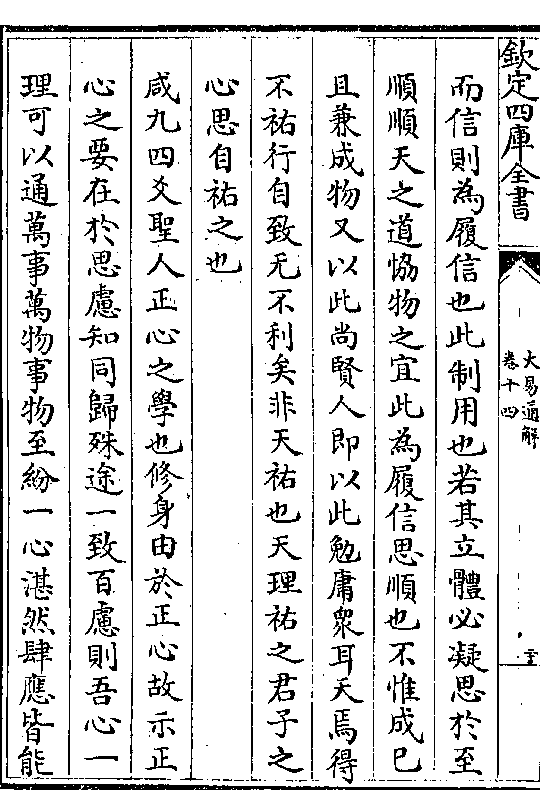 欽定四庫全書
大易通解
卷十四
而信則為履信也此制用也若其立體必凝思於至
順順天之道恊物之宜此為履信思順也不惟成已
且兼成物又以此尚賢人即以此勉庸衆耳天焉得
不祐行自致无不利矣非天祐也天理祐之君子之
心思自祐之也
咸九四爻聖人正心之學也修身由於正心故示正
心之要在於思慮知同歸殊途一致百慮則吾心一
理可以通萬事萬物事物至紛一心湛然肆應皆能